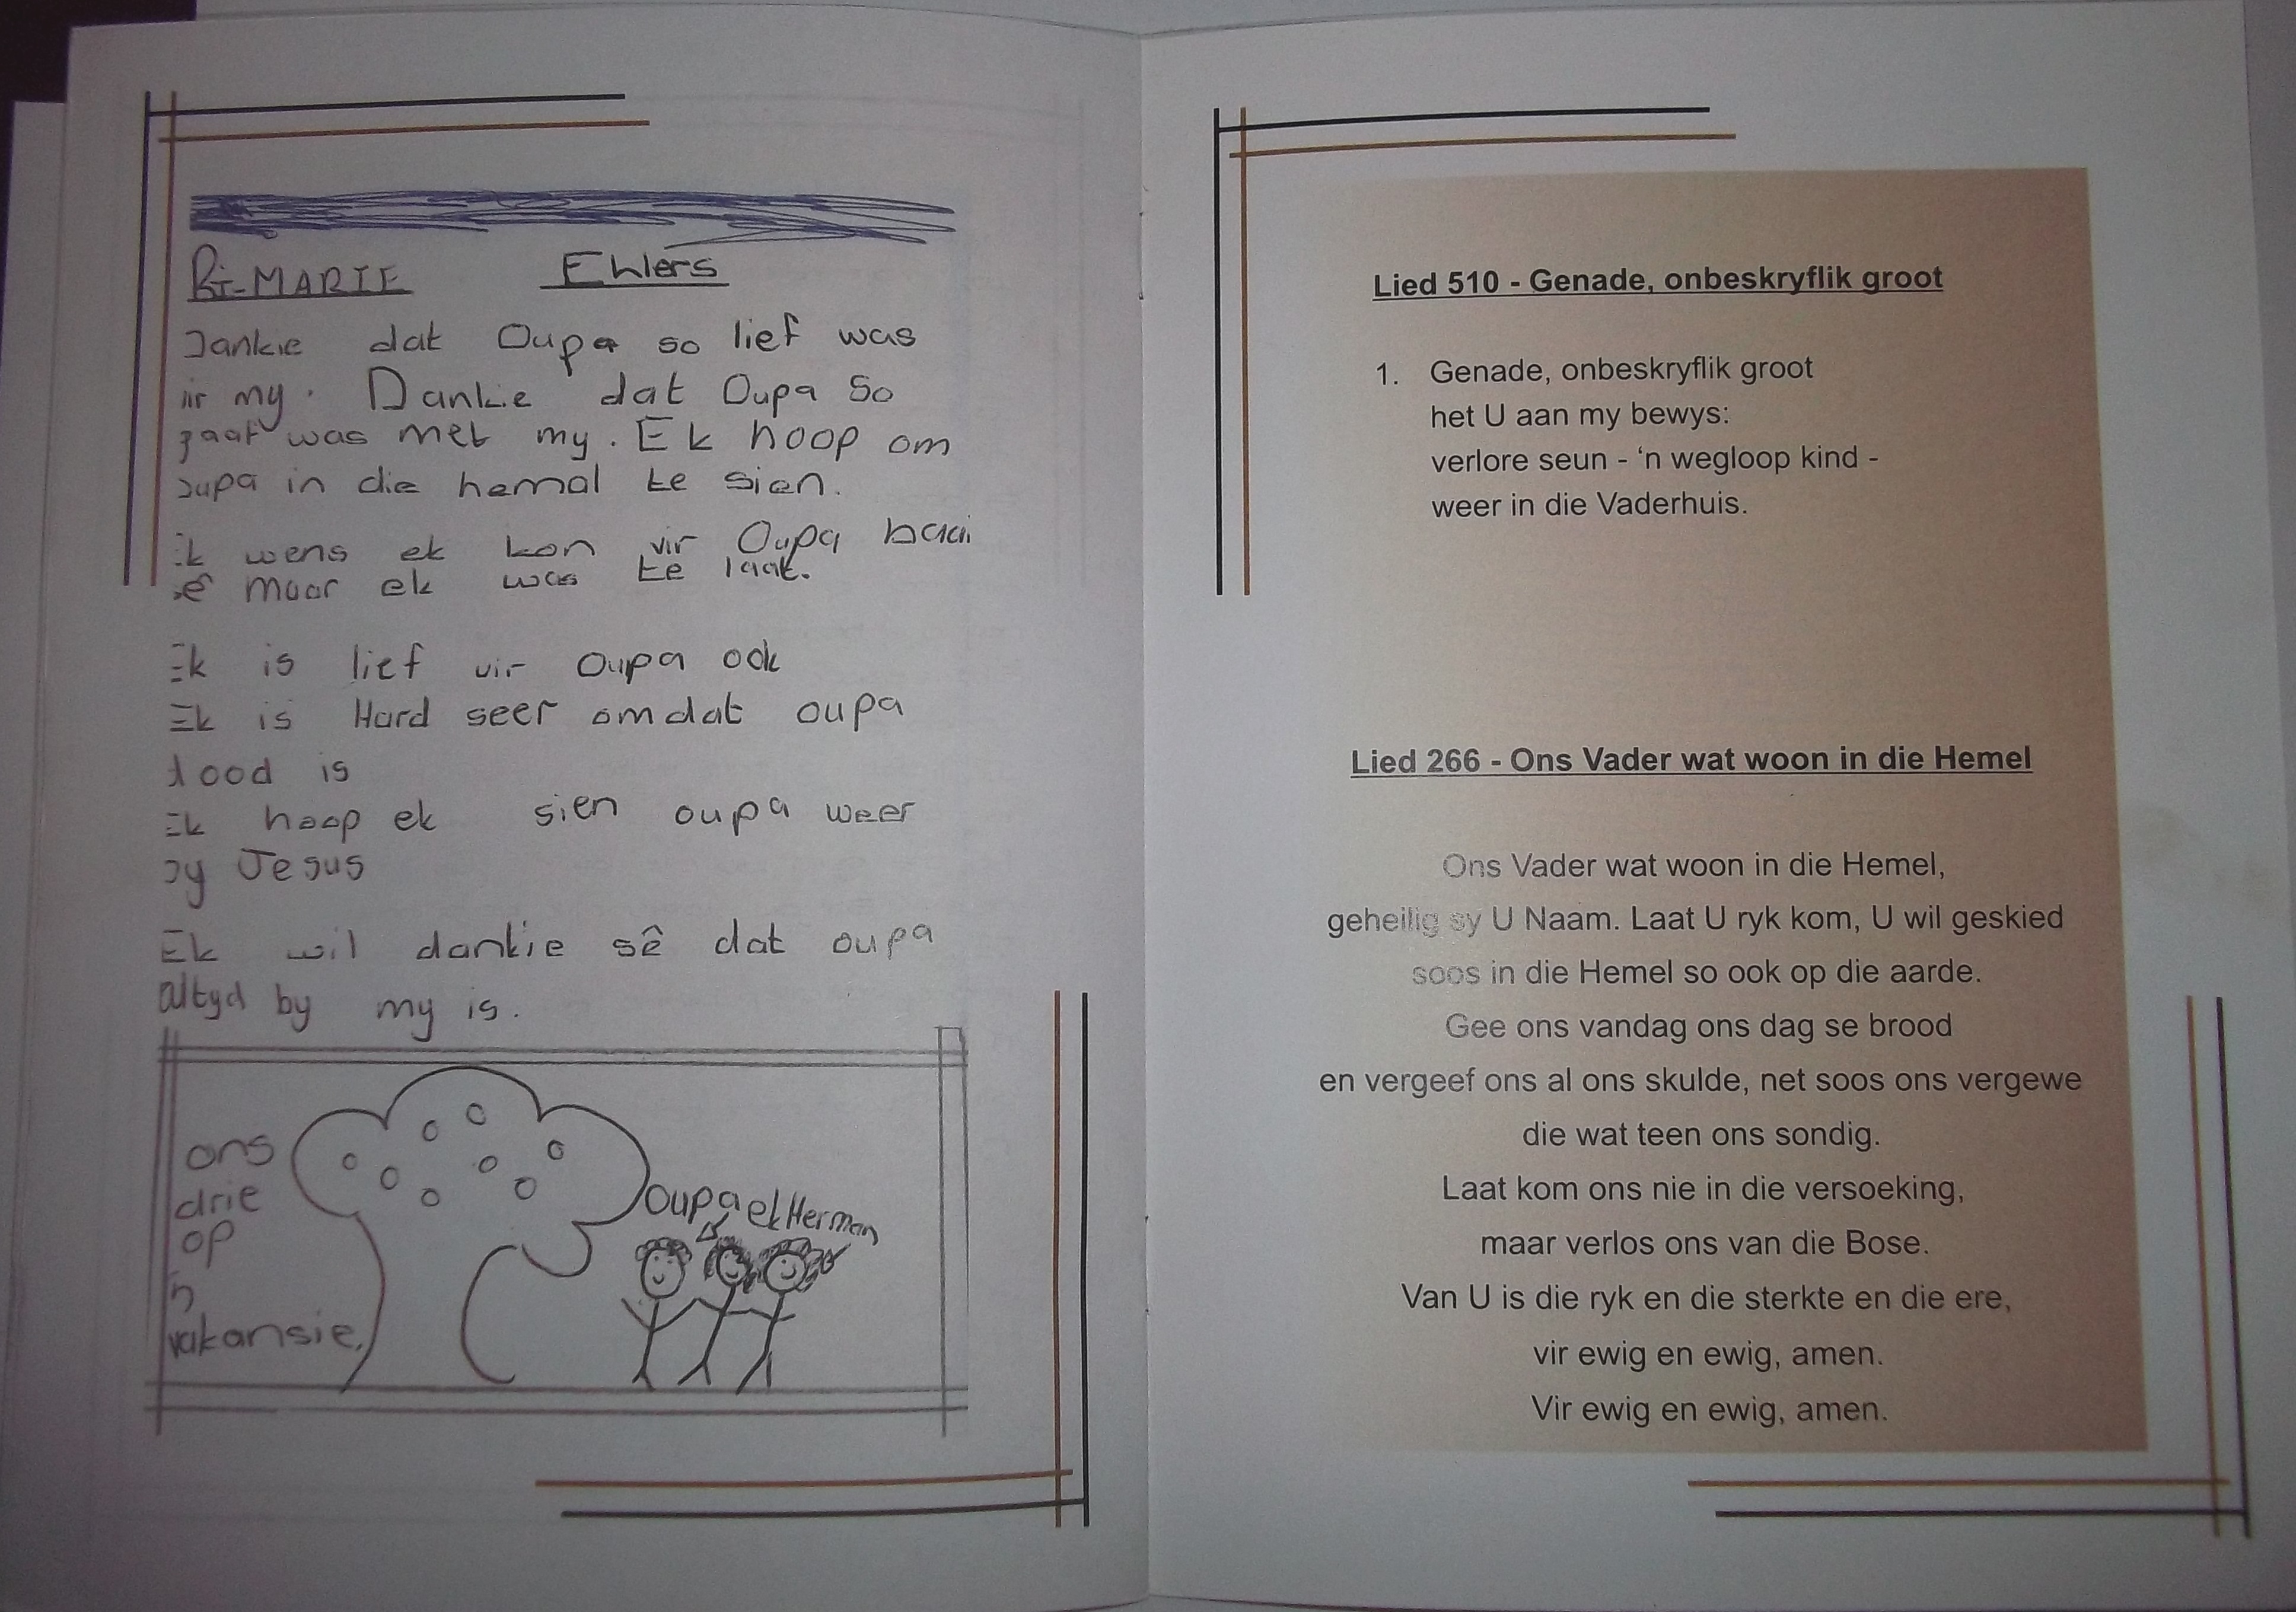 Ri-MARIE Ehlers
Dankie dat Oupa so lief was
vir my. Dankie dat Oupa So
gaaf was met my. Ek hoop om
oupa in die hemal te sien.
Ek wens ek kon vir Oupa baai
sê maar ek was te laat.
Ek is lief vir Oupa ook
Ek is Hard seer omdat oupa
dood is
Ek hoop ek sien oupa weer
by Jesus
Ek wil dankie sê dat oupa
altyd by my is.
ons
drie
op
'n
vakansie.
oupa ek Herman
Lied 510 - Genade, onbeskryflik groot
1. Genade, onbeskryflik groot
het U aan my bewys:
verlore seun - ‘n wegloop kind -
weer in die Vaderhuis.
Lied 266 - Ons Vader wat woon in die Hemel
Ons Vader wat woon in die Hemel,
geheilig sy U Naam. Laat U ryk kom, U wil geskied
soos in die Hemel so ook op die aarde.
Gee ons vandag ons dag se brood
en vergeef ons al ons skulde, net soos ons vergewe
die wat teen ons sondig.
Laat kom ons nie in die versoeking,
maar verlos ons van die Bose.
Van U is die ryk en die sterkte en die ere,
vir ewig en ewig, amen.
Vir ewig en ewig, amen.